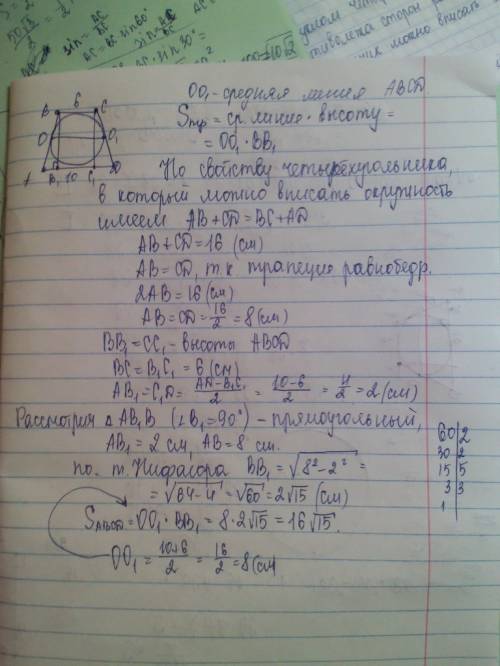 OO₁ - средняя линия ABCD
Sтр = ср. линия · высоту =
= OO₁ · BB₁
По свойству четырёхугольника,
в который можно вписать окружность
имеем AB + CD = BC + AD
AB + CD = 16 (см)
AB = CD, т.к трапеция равнобедр.
2AB = 16 (см)
AB = CD = 16/2 = 8 (см)
BB₁ = CC₁ - высоты ABCD
BC = B₁C₁ = 6 (см)
AB₁ = C₁D = (AD - B₁C₁)/2 = (10-6)/2 = 4/2 = 2 (см)
Рассмотрим △ AB₁B (∠B₁ = 90°) - прямоугольный,
AB₁ = 2 см, AB = 8 см.
по т. Пифагора BB₁ = √(8² - 2²) =
= √(64-4) = √60 = 2√15 (см)
SABCD = OO₁ · BB₁ = 8 · 2√15 = 16√15.
OO₁ = (10+6)/2 = 16/2 = 8 (см
B 6 C
O O₁
A B₁ 10 C₁ D
60 | 2
30 | 2
15 | 5
3 | 3
1